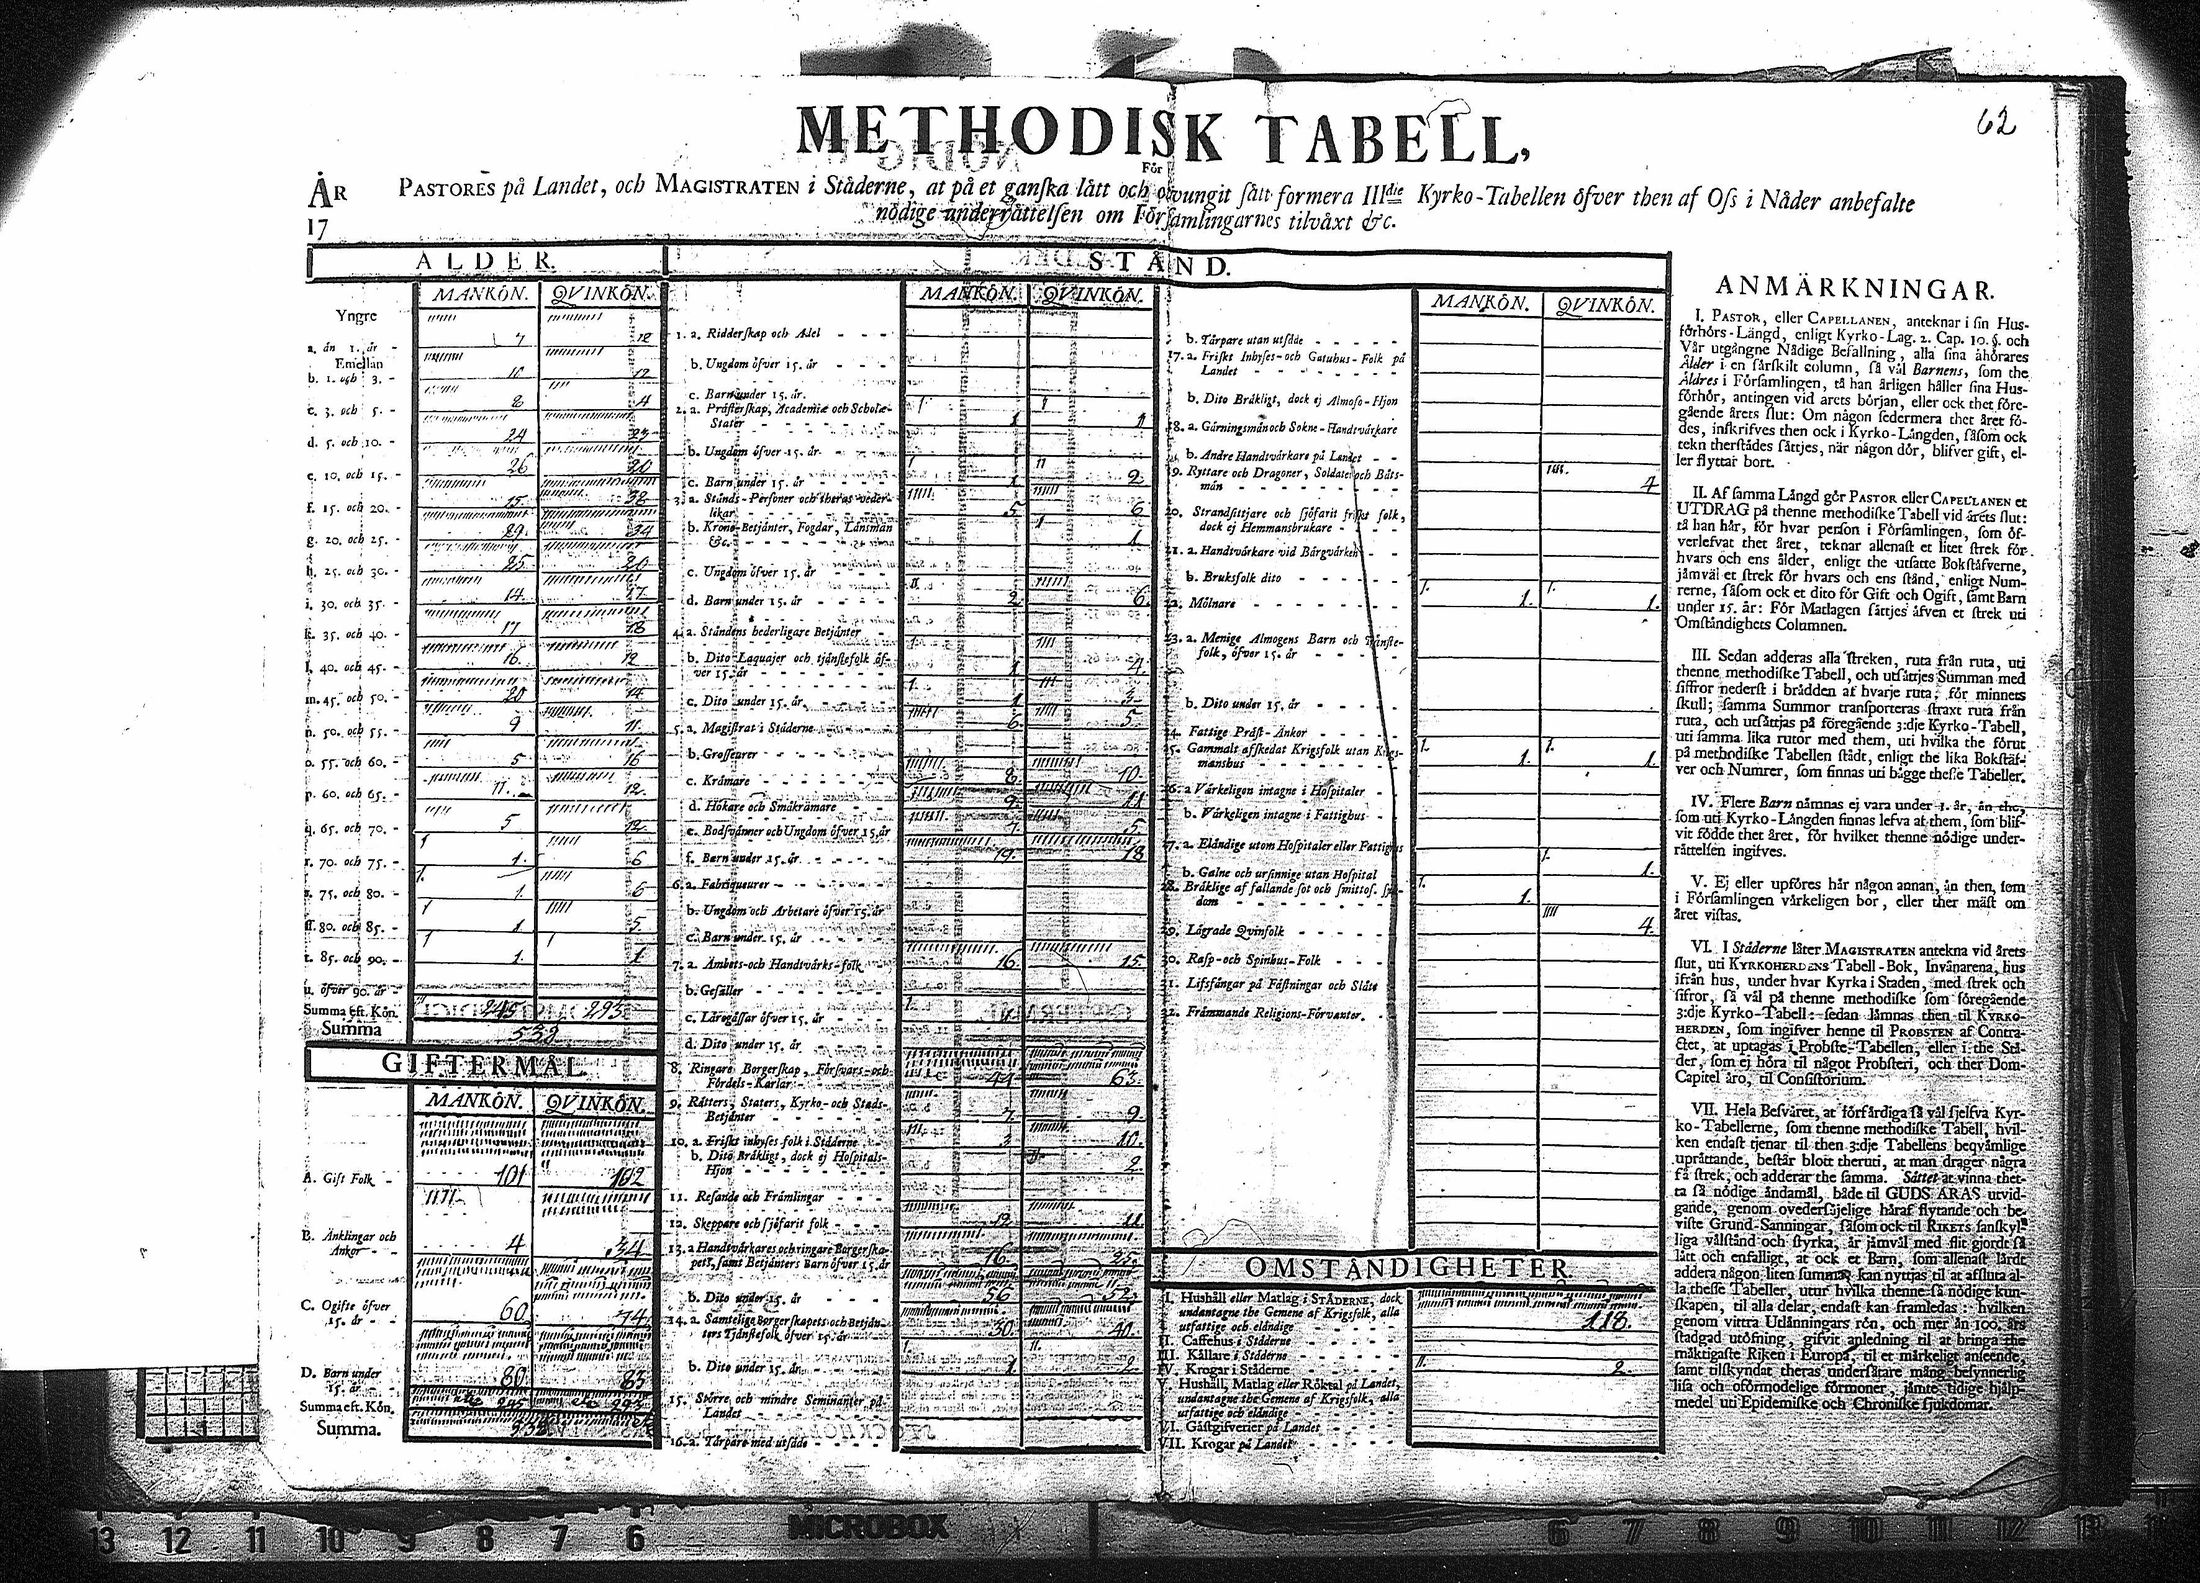 62
METHODISK TABELL,
För
ÅR
17
PASTORES på Landet, och MAGISTRATEN i Städerne, at på et ganska lätt och otvungit sätt formera IIIdie Kyrko-Tabellen öfver then af Oss i Nåder anbefalte
nödige underrättelsen om Församlingarnes tilväxt &c.
ÅLDER.
MANKÖN. QVINKÖN.
Yngre
a. än 1. år - 7 12
Emellan
b. 1. och 3. - 10 17
c. 3. och 5. - 8 4
d. 5. och 10. - 24 23
e. 10. och 15. - 26 20
f. 15. och 20. - 15 32
g. 20. och 25. - 29 34
h. 25. och 30. - 25 20
i. 30. och 35. - 14 17
k. 35. och 40. - 17 18
l. 40. och 45. - 16 12
m. 45. och 50. - 20 14
n. 50. och 55. - 9 11
o. 55. och 60. - 5 16
p. 60. och 65. - 11 12
q. 65. och 70. - 5 12
r. 70. och 75. - 1. 6
s. 75. och 80. - 1. 6
ss. 80. och 85. - 1 5
t. 85. och 90. - 1. 1
u. öfver 90. år -
Summa eft. Kön. 245 293
Summa 538
GIFTERMÅL
MANKÖN. QVINKÖN.
A. Gift Folk - 101 102
B. Änklingar och
Änkor - - 4 34
C. Ogifte öfver
15. år - - 60 74
D. Barn under
15. år 80 83
Summa eft. Kön. 245 293
Summa. 538
STÅND.
MANKÖN. QVINKÖN.
1. a. Ridderskap och Adel
b. Ungdom öfver 15. år
c. Barn under 15. år.
2. a. Prästerskap, Academiæ och Scholæ-
Stater 1 1
b. Ungdom öfver 15. år
c. Barn under 15. år 1 2
3. a. Stånds-Personer och theras veder-
likar 5 6
b. Krono-Betjänter, Fogdar, Länsmän
&c. 1
c. Ungdom öfver 15. år
d. Barn under 15. år 2 6
4. a. Ståndens hederligare Betjänter
b. Dito Laquajer och tjänstefolk öf-
ver 15. år 1 4
c. Dito under 15. år 1 3
5. a. Magistrat i Städerne 6 5
b. Grosseurer
c. Krämare 8 10
d. Hökare och Småkrämare 9 11
e. Bodsvänner och Ungdom öfver 15. år 7 5
f. Barn under 15. år 19 18
6. a. Fabriqueurer
b. Ungdom och Arbetare öfver 15. år
c. Barn under 15. år
7. a. Ämbets-och Handtvärks-folk 16 15
b. Gesäller
c. Lärogåssar öfver 15. år
d. Dito under 15. år
8. Ringare Borgerskap, Försvars-och
Fördels-Karlar 44 63
9. Rätters, Staters, Kyrko-och Stads-
Betjänter 7 9
10. a. Friskt inhyses folk i Städerne 3 10
b. Dito Bräkligt, dock ej Hospitals-
Hjon 2
11. Resande och Främlingar
12. Skeppare och sjöfarit folk 12 11
13. a Handtvärkares och ringare Borgerska-
pets, samt Betjänters Barn öfver 15. år 16 25
b. Dito under 15. år 56 52
14. a. Samtelige Borgerskapets och Betjän-
ters Tjänstefolk öfver 15. år 30 40
b. Dito under 15. år 1 2
15. Större och mindre Seminanter på
Landet
16. a. Tårpare med utsäde
MANKÖN. QVINKÖN.
b. Tårpare utan utsäde
17. a. Friskt Inhyses-och Gatuhus-Folk på
Landet
b. Dito Bräkligt, dock ej Almoso-Hjon
18. a. Gärningsmän och Sokne-Handtvärkare
b. Andre Handtvärkare på Landet
19. Ryttare och Dragoner, Soldater och Båts-
män 4
20. Strandsittjare och sjöfarit friskt folk,
dock ej Hemmansbrukare
21. a. Handtvärkare vid Bärgvärken
b. Bruksfolk dito
22. Mölnare 1. 1.
23. a. Menige Almogens Barn och Tjänste-
folk, öfver 15. år
b. Dito under 15. år
24. Fattige Präst-Änkor
25. Gammalt afskedat Krigsfolk utan Krigs-
manshus 1. 1.
26. a Värkeligen intagne i Hospitaler
b. Värkeligen intagne i Fattighus
27. a. Eländige utom Hospitaler eller Fattighus
b. Galne och ursinnige utan Hospital 1.
28. Bräklige af fallande sot och smittos. sju-
dom 1.
29. Lägrade Qvinfolk 4.
30. Rasp-och Spinhus-Folk
31. Lifsfångar på Fästningar och Slått
32. Främmande Religions-Förvanter.
OMSTÄNDIGHETER.
I. Hushåll eller Matlag i STÄDERNE, dock
undantagne the Gemene af Krigsfolk, alla
utfattige och eländige 118.
II. Caffehus i Städerne
III. Källare i Städerne
IV. Krogar i Städerne 2
V. Hushåll, Matlag eller Röktal på Landet,
undantagne the Gemene af Krigsfolk, alla
utfattige och eländige
VI. Gästgifverier på Landet
VII. Krogar på Landet
ANMÄRKNINGAR.
I. PASTOR, eller CAPELLANEN, anteknar i sin Hus-
förhörs-Längd, enligt Kyrko-Lag. 2. Cap. 10. §. och
Vår utgångne Nådige Befallning, alla sina åhörares
Ålder i en särskilt column, så väl Barnens, som the
Äldres i Församlingen, tå han årligen håller sina Hus-
förhör, antingen vid årets början, eller ock thet före-
gående årets slut: Om någon sedermera thet året fö-
des, inskrifves then ock i Kyrko-Längden, såsom ock
tekn therstädes sättjes, när någon dör, blifver gift, el-
ler flyttar bort.
II. Af samma Längd gör PASTOR eller CAPELLANEN et
UTDRAG på thenne methodiske Tabell vid årets slut:
tå han här, för hvar person i Församlingen, som öf-
verlefvat thet året, teknar allenast et litet strek för
hvars och ens ålder, enligt the utsatte Bokstäfverne,
jämväl et strek för hvars och ens stånd, enligt Num-
rerne, såsom ock et dito för Gift och Ogift, samt Barn
under 15. år: För Matlagen sättjes äfven et strek uti
Omständighets Columnen.
III. Sedan adderas alla streken, ruta från ruta, uti
thenne methodiske Tabell, och utsättjes Summan med
siffror nederst i brädden af hvarje ruta, för minnets
skull; samma Summor transporteras straxt ruta från
ruta, och utsättjas på föregående 3:dje Kyrko-Tabell,
uti samma lika rutor med them, uti hvilka the förut
på methodiske Tabellen städt, enligt the lika Bokstäf-
ver och Numrer, som finnas uti bägge thesse Tabeller.
IV. Flere Barn nämnas ej vara under 1. år, än the,
som uti Kyrko-Längden finnas lefva af them, som blif-
vit födde thet året, för hvilket thenne nödige under-
rättelsen ingifves.
V. Ej eller upföres här någon annan, än then, som
i Församlingen värkeligen bor, eller ther mäst om
året vistas.
VI. I Städerne låter MAGISTRATEN antekna vid årets
slut, uti KYRKOHERDENS Tabell-Bok, Invånarena, hus
ifrån hus, under hvar Kyrka i Staden, med strek och
sifror, så väl på thenne methodiske som föregående
3:dje Kyrko-Tabell: sedan lämnas then til KYRKO-
HERDEN, som ingifver henne til PROBSTEN af Contra-
ctet, at uptagas i Probste-Tabellen, eller i the Stä-
der, som ej höra til något Probsteri, och ther Dom-
Capitel äro, til Consistorium.
VII. Hela Besväret, at förfärdiga så väl sjelfva Kyr-
ko-Tabellerne, som thenne methodiske Tabell, hvil-
ken endast tjenar til then 3:dje Tabellens beqvämlige
uprättande, består blott theruti, at man drager några
få strek, och adderar the samma. Sättet at vinna thet-
ta så nödige ändamål, både til GUDS ÄRAS utvid-
gande, genom ovedersäjelige häraf flytande och be-
viste Grund-Sanningar, såsom ock til RIKETS sanskyl-
liga välstånd och styrka, är jämväl med flit gjordt så
lätt och enfalligt, at ock et Barn, som allenast lärdt
addera någon liten summa, kan nyttjas til at afsluta al-
la thesse Tabeller, utur hvilka thenne så nödige kun-
skapen, til alla delar, endast kan framledas: hvilken
genom vittra Utlänningars rön, och mer än 100. års
stadgad utöfning, gifvit anledning til at bringa the
mäktigaste Riken i Europa, til et märkeligt anseende,
samt tilskyndat theras undersåtare mång besynnerlig
lisa och oförmodelige förmoner, jämte tidige hjälp-
medel uti Epidemiske och Chroniske sjukdomar.
13 12 11 10 9 8 7 6
MICROBOX
6 7 8 9 10 11 12 13